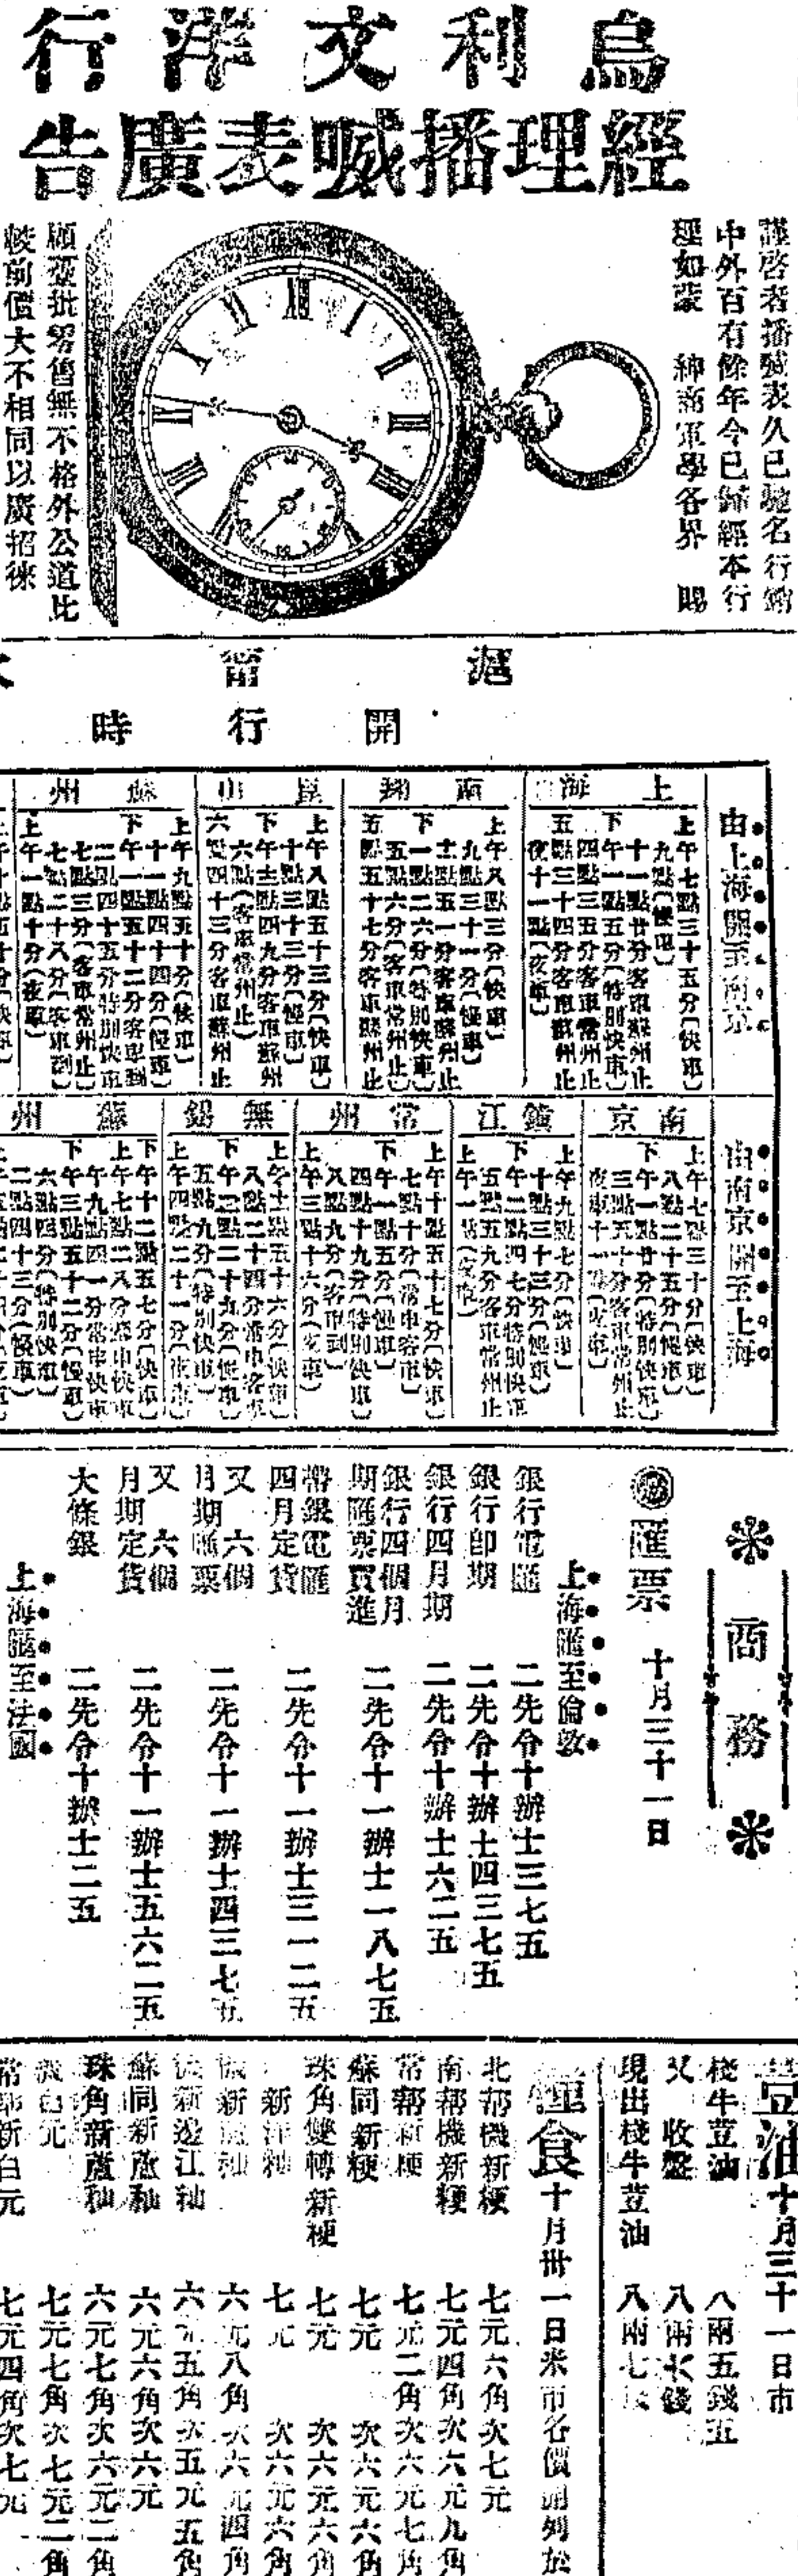 烏利文洋行
經理播喊表廣告
謹啓者播喊表久已馳名行銷
中外百有餘年今已歸經本行
經理如蒙 紳商軍學各界 賜
顧躉批零售無不格外公道比
較前價大不相同以廣招徠
滬甯
開行時
由上海開至南京
上海
上午七點三十五分(快車)
九點(慢車)
十一點廿分客車蘇州止
下午一點五分(特別快車)
四點三五分客車常州止
五點三十四分客車蘇州止
夜十一點(夜車)
南翔
上午八點三分(快車)
九點三十一分(慢車)
十二點五一分客車蘇州止
下一點二六分(特別快車)
五點六分(客車常州止)
五點五十七分客車蘇州止
崑山
上午八點五十三分(快車)
十點三十三分(慢車)
下午三點四九分客車蘇州
六點(客車常州止)
六點四十三分客車蘇州止
蘇州
上午九點五十分(快車)
十一點四十四分(慢車)
下午一點五十二分客車到
二點四十五分特別快車
七點三分(客車常州止)
七點二十八分(客車到)
上午一點十分(夜車)
由南京開至上海
南京
上午七點三十分(快車)
八點二十五分(慢車)
下午一點廿分(特別快車)
三點五十分客車常州止
夜車十一點(夜車)
鎮江
上午九點七分(快車)
十點三十三分(慢車)
下午二點四七分特別快車
五點五九分客車常州止
上午一點(夜車)
常州
上午十點五十七分(快車)
七點十分(常車客車)
下午一點五分(慢車)
四點十九分(特別快車)
八點九分(客車到)
上午三點十六分(夜車)
無錫
上午十一點五十六分(快車)
八點二十四分常車客車
下午二點二十九分(慢車)
五點九分(特別快車)
上午四點二十一分(夜車)
蘇州
下午十二點五七分(快車)
上午七點二八分蘇車快車
午九點四一分常車快車
下午三點五十二分(慢車)
六點四分(特別快車)
二點四十三分(慢車)
商務
匯票 十月三十一日
上海匯至倫敦
銀行電匯 二先令十辦士三七五
銀行卽期 二先令十辦士四三七五
銀行四月期 二先令十辦士六二五
銀行四個月期匯票買進 二先令十一辦士一八七五
帶銀電匯四月定貨 二先令十一辦士三一二五
又 六個月期匯票 二先令十一辦士四三七五
又 六個月期定貨 二先令十一辦士五六二五
大條銀 二先令十辦士二五
上海匯至法國
荳油 十月三十一日市
棧牛荳油 八兩五錢五
又 收盤 八兩七錢
現出棧牛荳油 八兩七
糧食 十月卅一日米市各價開列於
北帮機新粳 七元六角次七元
南帮機新粳 七元四角次六元九角
常帮新粳 七元二角次六元七角
蘇同新粳 七元 次六元六角
珠角雙轉新粳 七元 次六元六角
新洋秈 七元 次六元六角
新蘆秈 六元八角次六元四角
新邊江秈 六元五角次五元五角
蘇同新蘆秈 六元六角次六元
珠角新蘆秈 六元七角次六元二角
白元 七元七角次七元二角
常帮新白元 七元四角次七元